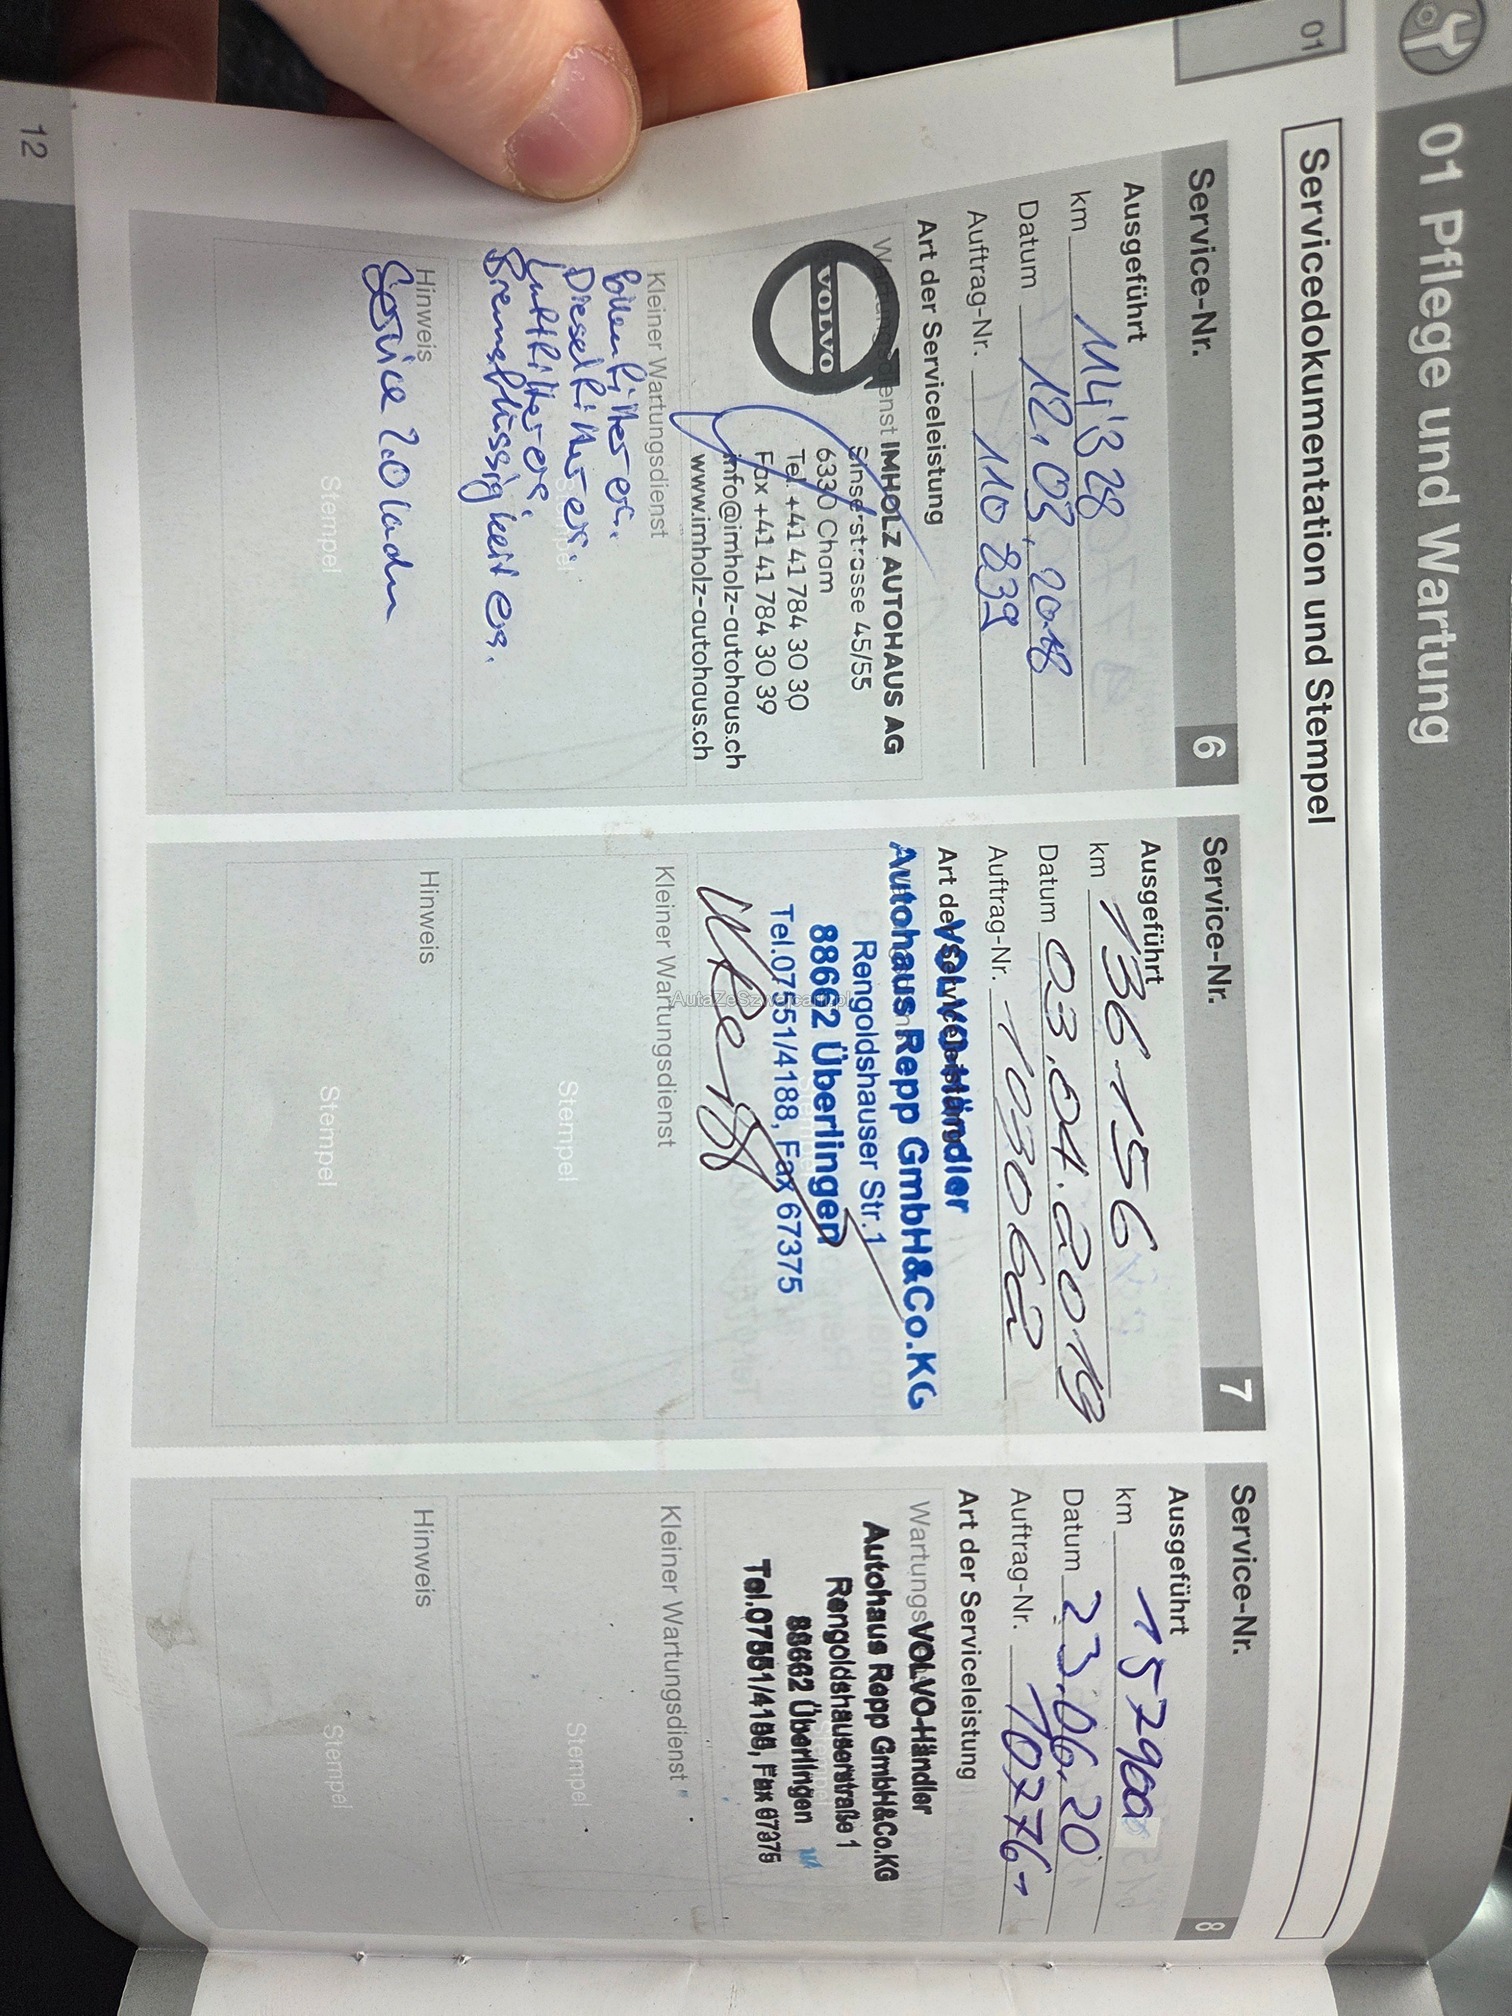 01 Pflege und Wartung
01
Servicedokumentation und Stempel
Service-Nr. 6
Ausgeführt
km 114'328
Datum 12.03.2018
Auftrag-Nr. 110 839
Art der Serviceleistung
VOLVO
IMHOLZ AUTOHAUS AG
Sinserstrasse 45/55
6330 Cham
Tel +41 41 784 30 30
Fax +41 41 784 30 39
info@imholz-autohaus.ch
www.imholz-autohaus.ch
Kleiner Wartungsdienst
Dieselfilter ers.
Luftfilter ers.
Bremsflüssigkeit ers.
Stempel
Hinweis
Service 2.0
Stempel
Service-Nr. 7
Ausgeführt
km 136156
Datum 03.04.2019
Auftrag-Nr. 103062
Art der Serviceleistung
VOLVO-Händler
Autohaus Repp GmbH&Co.KG
Rengoldshauser Str.1
88662 Überlingen
Tel.07551/4188, Fax 67375
AutaZeSzwajcarii.pl
Kleiner Wartungsdienst
Stempel
Hinweis
Stempel
Service-Nr. 8
Ausgeführt
km 157900
Datum 23.06.20
Auftrag-Nr. 107761
Art der Serviceleistung
Wartungs VOLVO-Händler
Autohaus Repp GmbH&Co.KG
Rengoldshauserstraße 1
88662 Überlingen
Tel.07551/4188, Fax 67375
Kleiner Wartungsdienst
Stempel
Hinweis
Stempel
12